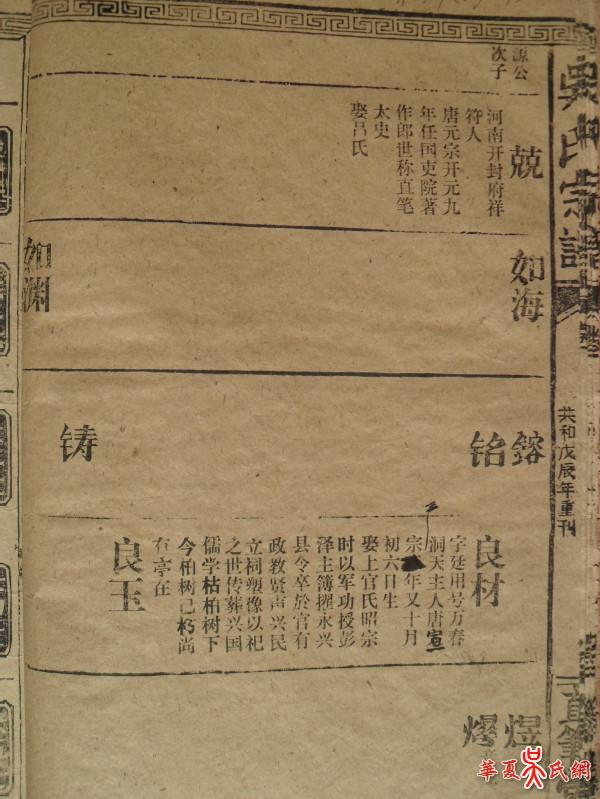 吴氏宗譜
共和戊辰年重刊
直筆
源公
次子
兢
河南开封府祥
符人
唐元宗开元九
年任国吏院著
作郎世称直笔
太史
娶吕氏
如海
如渊
鎔
铭
铸
良材
字廷用号万春
洞天主人唐宣
宗三年又十月
初六日生
娶上官氏昭宗
时以军功授彭
泽主簿擢永兴
县令卒於官有
政教贤声兴民
立祠塑像以祀
之世传葬兴国
儒学枯柏树下
今柏树已朽尚
有亭在
良玉
煜
燦
華夏吴氏網